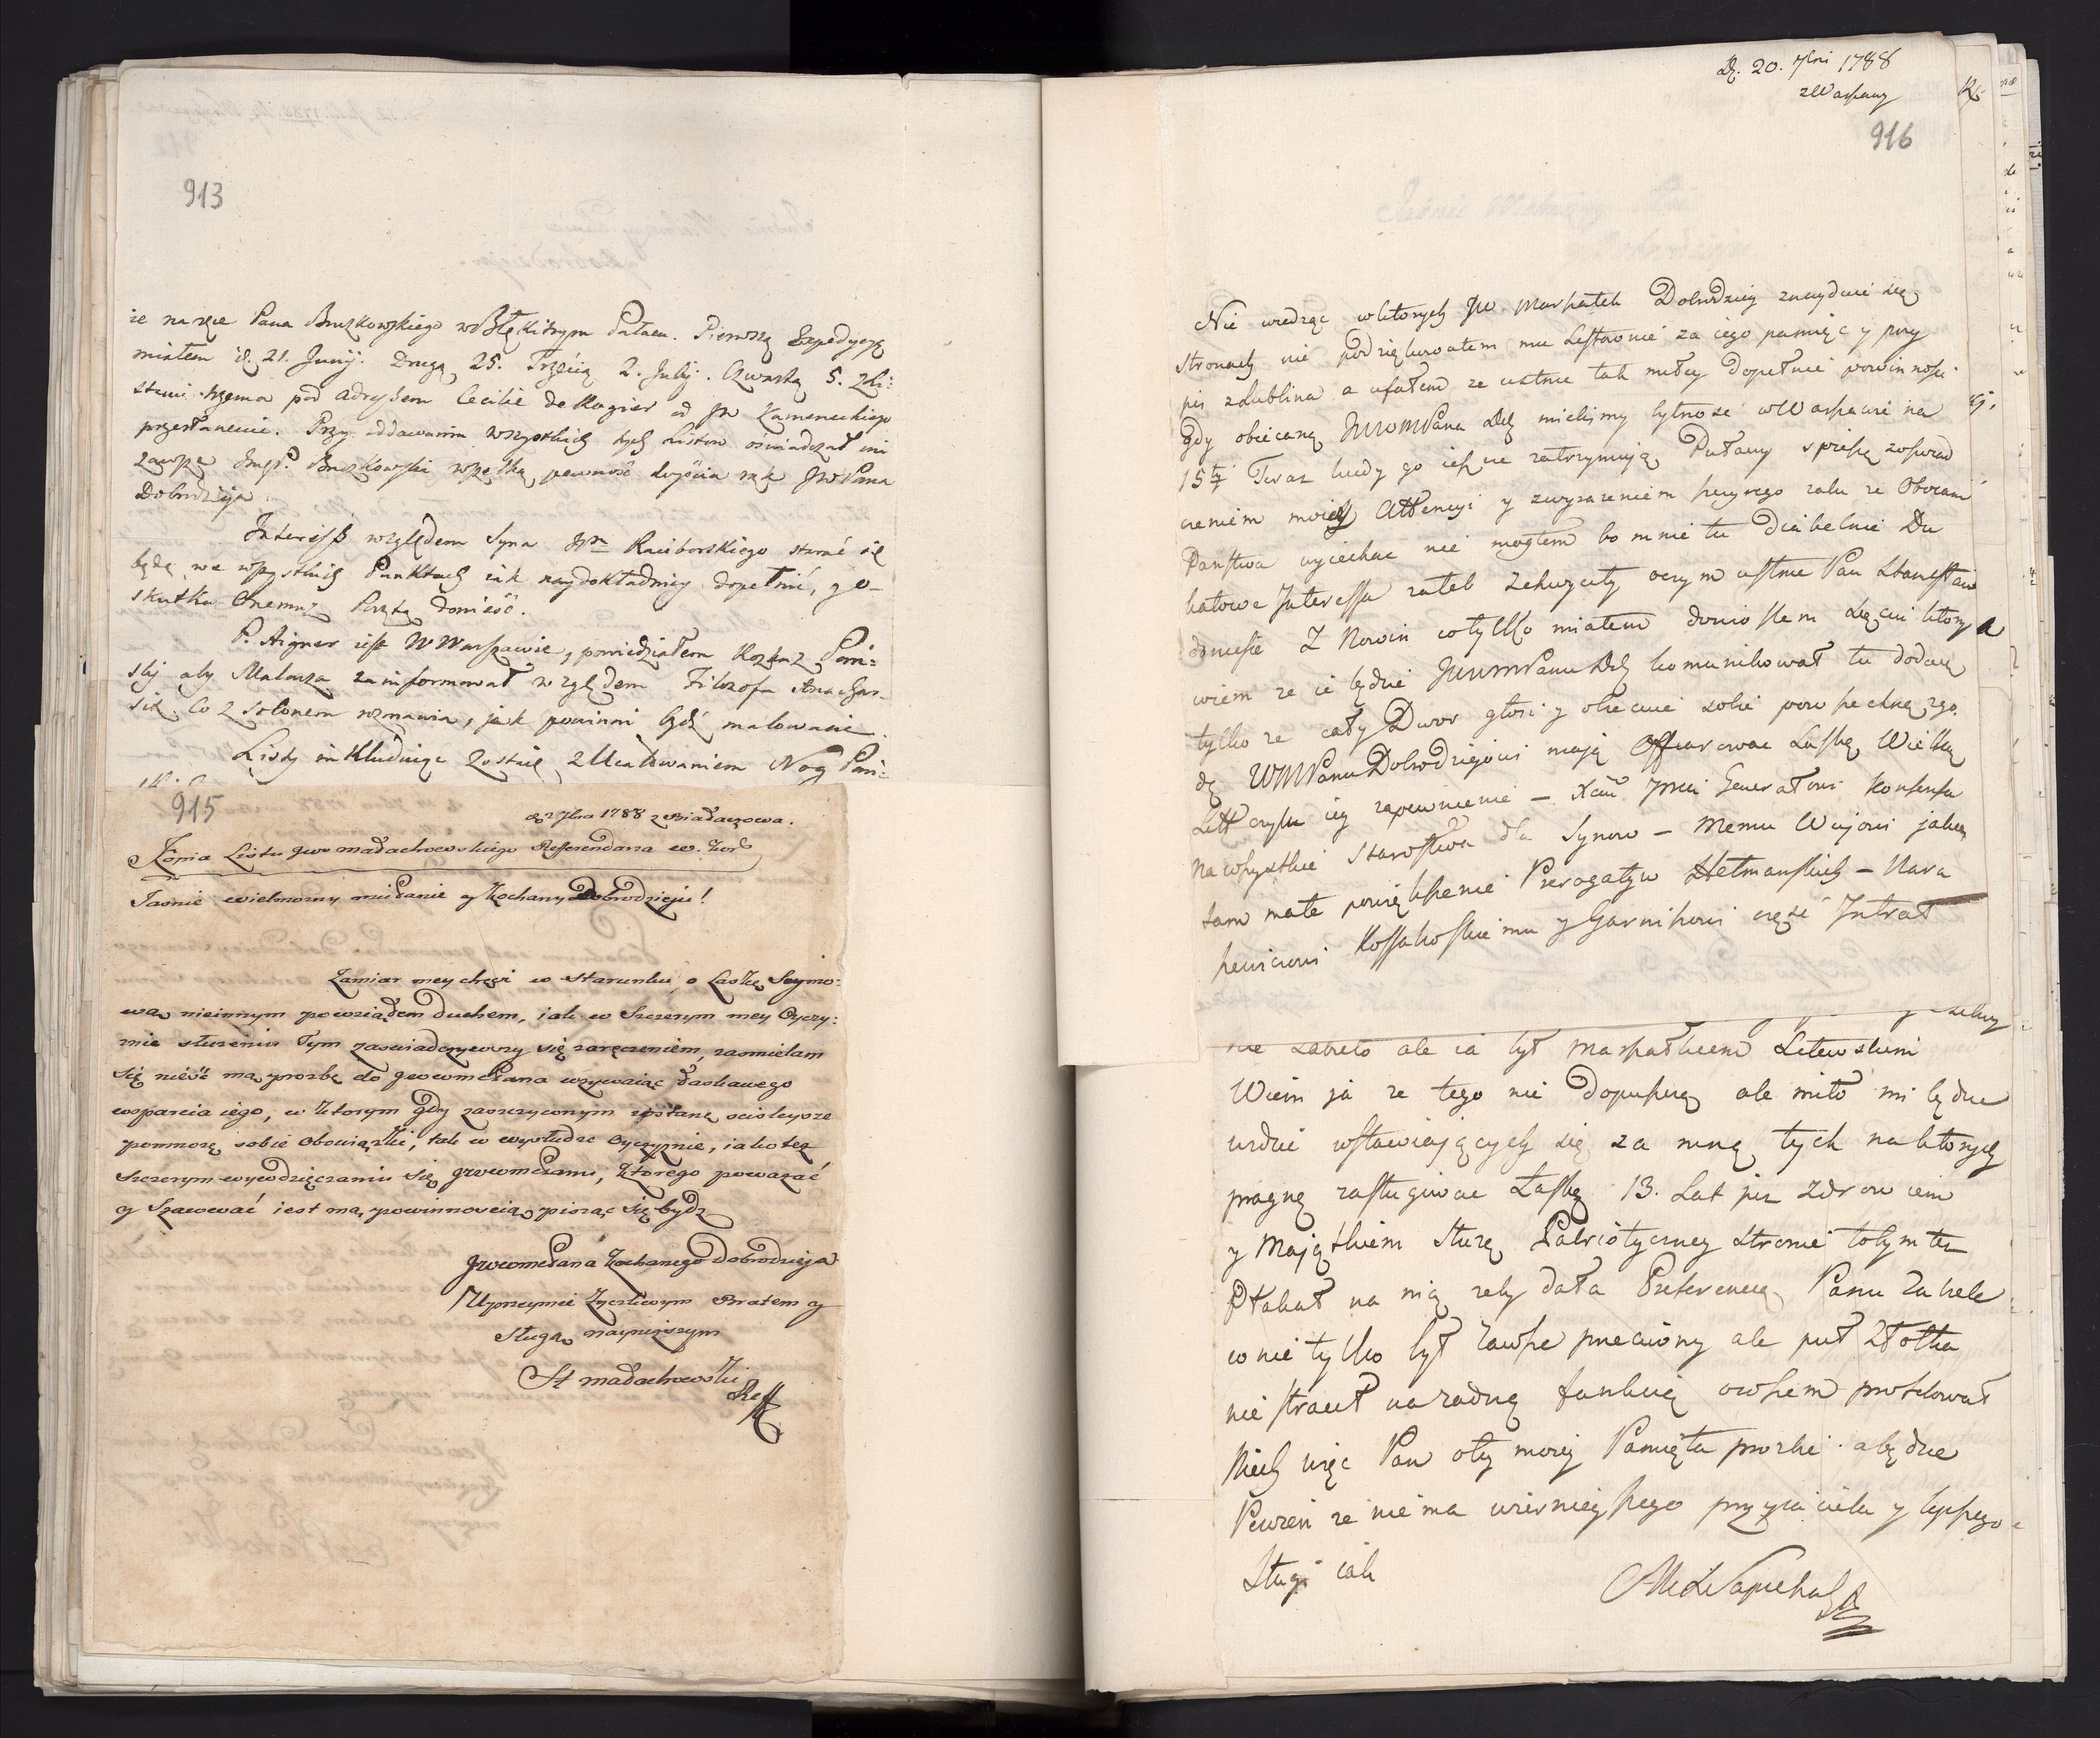 913
że na ręce Pana Bruzkowskiego w Błękitnym Pałacu. Pierwszą Expedycyę
miałem d. 21. Junij. Drugą 25. Trzecią 2. Julij. Czwartą 5. z Li:
stami trzema pod adryssem Cecilie de Rogier od JP Kameneckiego
przesłanemi. Przy oddawaniu wszystkich tych Listow oświadczał mi
zawsze Imć P. Bruzkowski wszelką pewność doyścia rąk JWPana
Dobrodzieja.
Interess względem Syna JPn Raciborskiego starać się
będę we wszystkich Punktach iak naydokładniey dopełnić, y o
skutku Onemuz Pocztą donieść.
P. Aigner iest w Warszawie, powiedziałem Rozkaz Pań:
ski aby Malarza zainformował względem Filozofa Anachar-
sik. Co z Solonem rozmawia, jak powinni bydź malowani.
Listy inkludując zostaię z Ucałowaniem Nog Pań:
915
d. 2 7bra 1788 z Białaczowa.
Kopia Listu JWo Małachowskiego Refferendarza W. Kor.
Jasnie Wielmozny Mci Panie y Kochany Dobrodzieju!
Zamiar mey chęci w Starunku o Laskę Seymo:
wą nieinnym powziąłem duchem, iak w Szczerym mey Oyczy:
znie służeniu Tym zaswiadczywszy się zaręczeniem, zasmielam
się nieść mą prozbę do JWWMPana wzywaiąc Łaskawego
wsparcia iego, w ktorym gdy zaszczyconym zostanę scisleysze
pomnozę sobie Obowiązki, tak w wysłudze Oyczyznie, iako tez
szczerym wywdzięczaniu się JWWMPanu, Ktorego powazać
y Szacować iest mą powinnoscią, pisząc się bydz
JWWMPana Kochanego Dobrodzieja
Uprzeymie Zyczliwym Bratem y
Sługą nayniższym
St Małachowski
Reff
D. 20. 7bri 1788
z Warszawy
916
Nie wiedząc w ktorych JW Marszałek Dobrodziey znayduie się
stronach nie podziękowałem mu Listownie za iego pamięc y przy
pis z Lublina a ufałem ze ustnie tak miłey dopełnie powinnosci
gdy obiecaną JWWMPana Dob mielismy bytnosć w Warszawie na
15 Teraz kiedy go ieszcze zatrzymują Puławy spieszę zoswiad
czeniem moiey Attencyi y zwyrazeniem szczyrego zalu ze Obocam
Panstwa uyiechac nie mogłem bo mnie tu Diabelnie Du
katowe Interessa zateb zchwycity oczym ustnie Pan Stanisław
doniesie Z Nowin co tylko miałem doniosłem Xięciu ktory
wiem ze ie będzie JWWMPanu Dob komunikował tu dodaię
tylko ze cały Dwor głosi y obiecuie sobie powszechną zgo
dę WMPanu Dobrodziejowi mają Offiarowac Laskę Wielką
Litt czyli iey zapewnienie – Xciu Jmci Generałowi Konsensa
na wszystkie Starostwa dla Synow – Memu Wujowi jakąs
tam małe powiększenie Prerogatyw Hetmanskich – Naru
szewiczowi Kossakoskiemu y Garnikowi część Intrat
nie Zabieło ale ia był Marszałkiem Litewskim
Wiem ja ze tego nie Dopuszczą ale miło mi będzie
widzie wstawiających się za mną tych na ktorych
pragnę zasługiwac Łaskę 13. Lat juz zdrowiem
y Majątkiem służę Patriotyczney stronie to bym tez
Płakał na nią zeby dała Preferencią Panu Zabiele
co nie tylko był zawsze przeciwny ale puł Złotka
nie stracił na zadną funkcią owszem profitował
Niech więc Pan o tey mojey Pamięta prozbie a będzie
Pewien ze nie ma wierniejszego przyjaciela y lepszego
Sługi iak